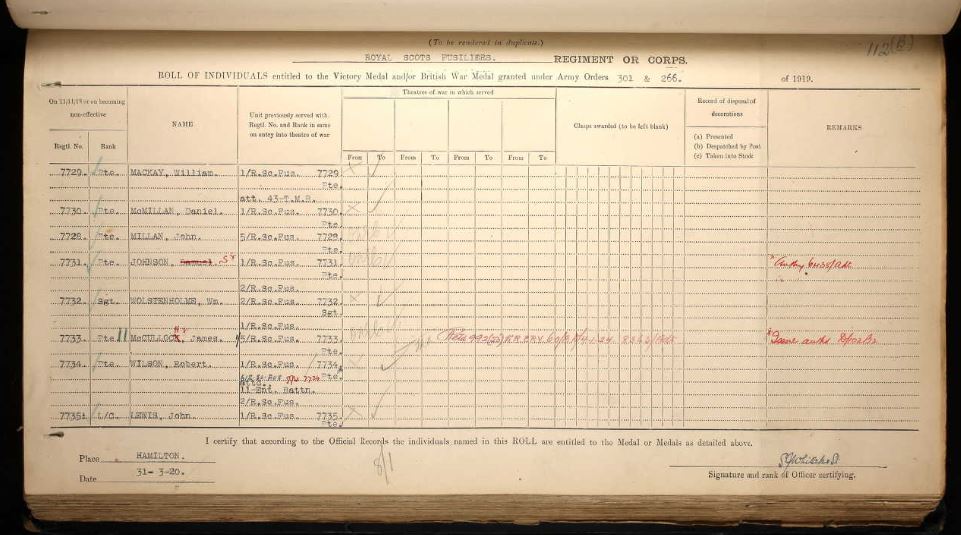 (To be rendered in duplicate.)
112(B)
ROYAL SCOTS FUSILIERS. REGIMENT OR CORPS.
ROLL OF INDIVIDUALS entitled to the Victory Medal and/or British War Medal granted under Army Orders 301 & 266. of 1919.
On 11/11/18 or on becoming non-effective
Regtl. No. Rank
NAME
Unit previously served with Regtl. No. and Rank in same on entry into theatre of war
Theatres of war in which served
From To From To From To From To
Clasps awarded (to be left blank)
Record of disposal of decorations
(a) Presented
(b) Despatched by Post
(c) Taken into Stock
REMARKS
7729. Pte. MACKAY, William. 1/R.Sc.Fus. 7729
Pte.
att. 43-T.M.B.
7730. Pte. McMILLAN, Daniel. 1/R.Sc.Fus. 7730.
Pte.
7728. Pte. MILLAN, John. 5/R.Sc.Fus. 7728.
Pte.
7731. Pte. JOHNSON, Samuel. S 1/R.Sc.Fus. 7731
Pte.
2/R.Sc.Fus.
7732. Sgt. WOLSTENHOLME, Wm. 2/R.Sc.Fus. 7732
Sgt.
1/R.Sc.Fus.
7733. Pte McCULLOCK, James. 5/R.Sc.Fus. 7733.
Pte.
7734. Pte. WILSON, Robert. 1/R.Sc.Fus. 7734
Pte.
11-Ent. Battn.
2/R.Sc.Fus.
7735. L/C. LEWIS, John. 1/R.Sc.Fus. 7735.
Pte.
I certify that according to the Official Records the individuals named in this ROLL are entitled to the Medal or Medals as detailed above.
Place HAMILTON.
Date 31-3-20.
8/1
Signature and rank of Officer certifying.